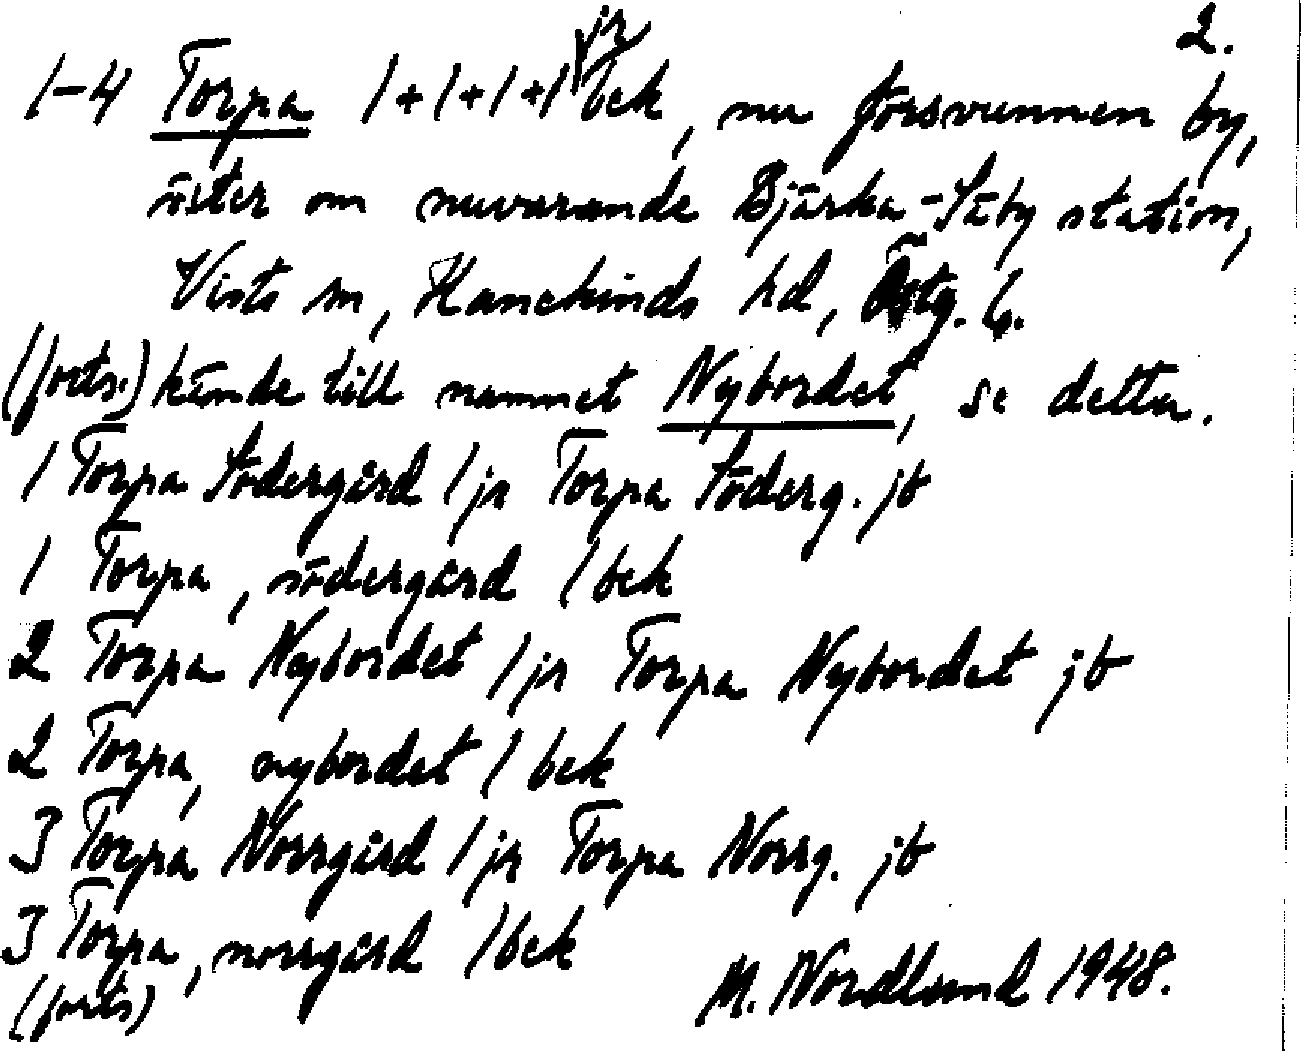 2.
1-4 Torpa 1+1+1+1 jr bek, nu försvunnen by,
öster om nuvarande Bjärka-Säby station,
Vists sn, Hanekinds hd, Östg. l.
(forts.) kände till namnet Nybordet, se detta.
1 Torpa Södergård 1 jr Torpa Söderg. jb
1 Torpa, södergård 1 bek
2 Torpa Nybordet 1 jr Torpa Nybordet jb
2 Torpa, nybordet 1 bek
3 Torpa Norrgård 1 jr Torpa Norrg. jb
3 Torpa, norrgård 1 bek
(forts) M. Nordlund 1948.